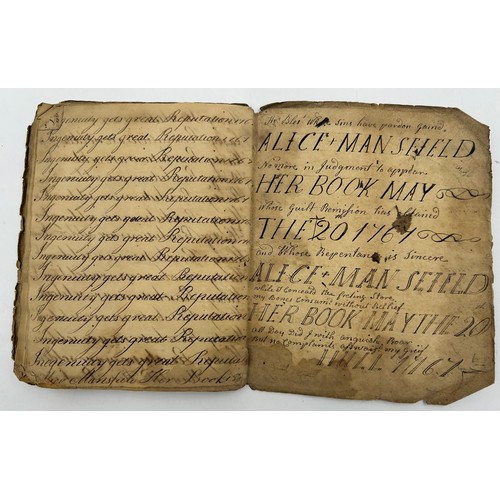 Ingenuity gets great Reputation
Ingenuity gets great Reputation
Ingenuity gets great Reputation
Ingenuity gets great Reputation
Ingenuity gets great Reputation
Ingenuity gets great Reputation
Ingenuity gets great Reputation
Ingenuity gets great Reputation
Ingenuity gets great Reputation
Ingenuity gets great Reputation
Ingenuity gets great Reputation
Ingenuity gets great Reputation
Ingenuity gets great Reputation
Mansfield Her Book
Sins have pardon Gaind
ALICE + MANSFIELD
No more in Judgment to appear
HER BOOK MAY
whose Guilt Remission has
THE 20 1767
and Whose Repentance is Sincere
ALICE + MANSFIELD
while I Conceald the
my Bones Consum'd without Relief
HER BOOK MAY THE 20
all Day Did I with anguish Roar
But no Complaints my Grief
1767